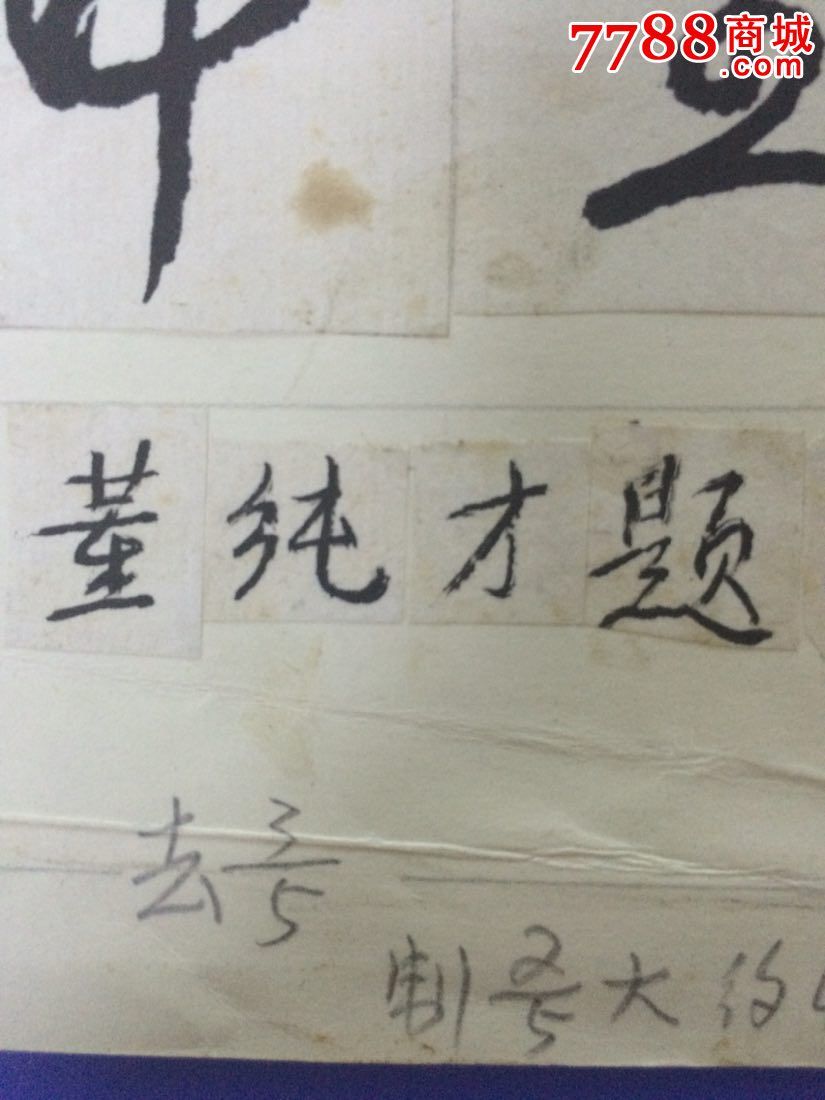 7788商城
.com
董纯才题
去3/5
制2/5大约